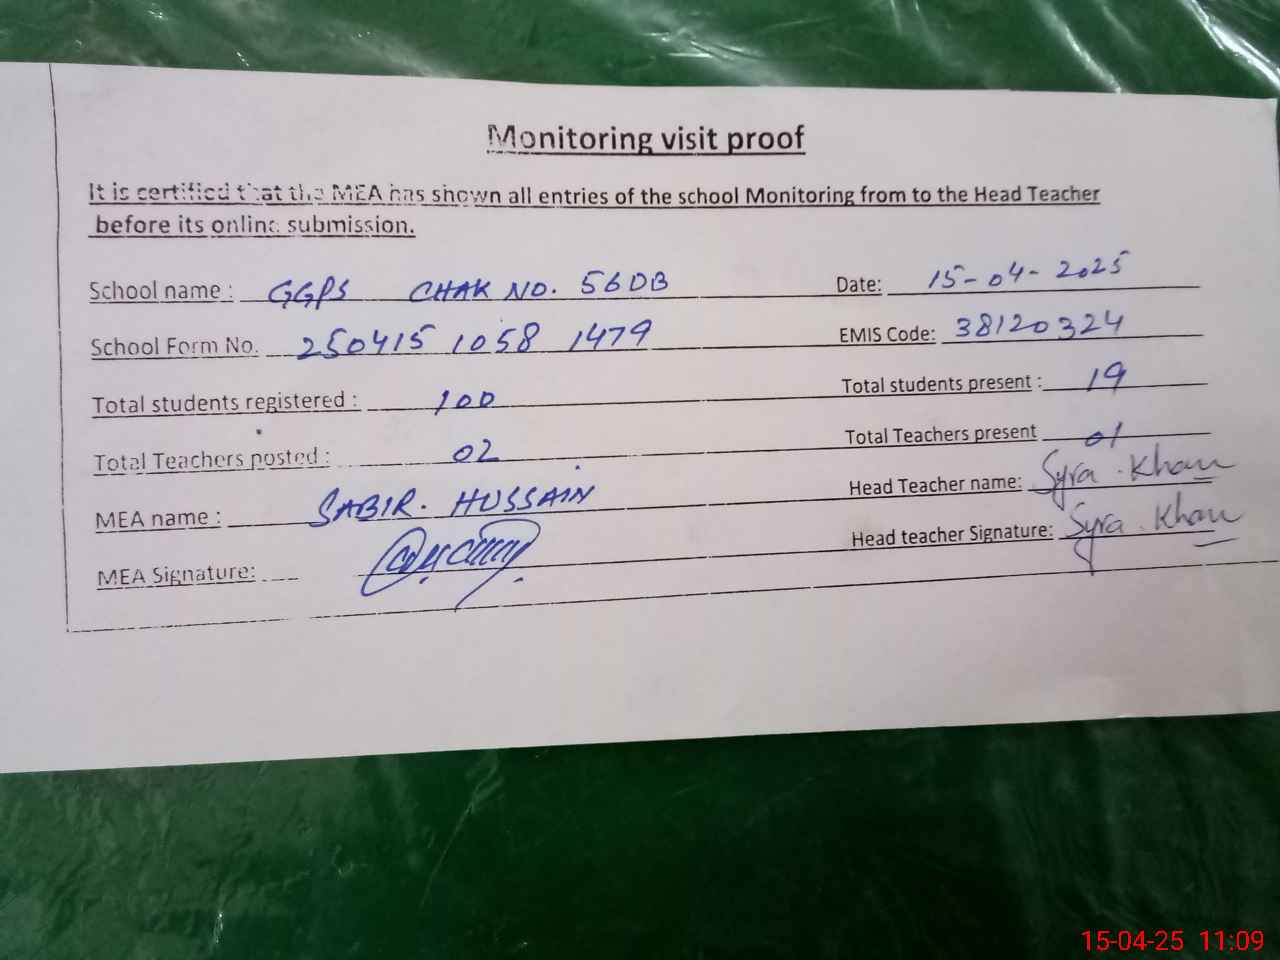 Monitoring visit proof
It is certified that the MEA has shown all entries of the school Monitoring from to the Head Teacher
before its online submission.
School name : GGPS CHAK NO. 56DB Date: 15-04-2025
School Form No. 250415 1058 1479 EMIS Code: 38120324
Total students registered : 100 Total students present : 19
Total Teachers posted : 02 Total Teachers present 01
MEA name : SABIR. HUSSAIN Head Teacher name: Syra . Khan
MEA Signature: Head teacher Signature: Syra . Khan
15-04-25 11:09